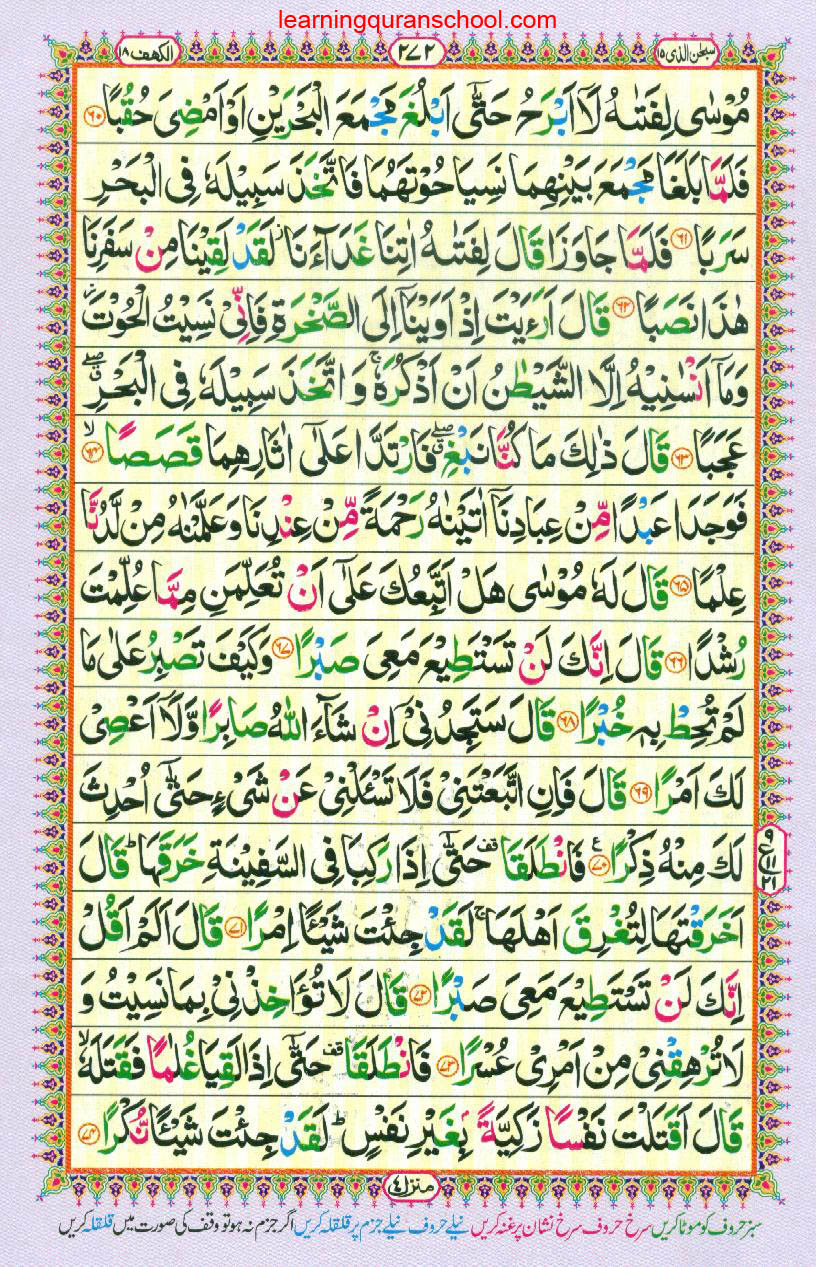 learningquranschool.com
سبحٰن الذی ۱۵
۲۷۲
الکھف ۱۸
مُوْسٰى لِفَتٰىهُ لَاۤ اَبْرَحُ حَتّٰۤى اَبْلُغَ مَجْمَعَ الْبَحْرَيْنِ اَوْ اَمْضِىَ حُقُبًا ۶۰
فَلَمَّا بَلَغَا مَجْمَعَ بَيْنِهِمَا نَسِيَا حُوْتَهُمَا فَاتَّخَذَ سَبِيْلَهٗ فِى الْبَحْرِ
سَرَبًا ۶۱ فَلَمَّا جَاوَزَا قَالَ لِفَتٰىهُ اٰتِنَا غَدَآءَنَا ز لَقَدْ لَقِيْنَا مِنْ سَفَرِنَا
هٰذَا نَصَبًا ۶۲ قَالَ اَرَءَيْتَ اِذْ اَوَيْنَاۤ اِلَى الصَّخْرَةِ فَاِنِّىْ نَسِيْتُ الْحُوْتَ ز
وَمَاۤ اَنْسٰنِيْهُ اِلَّا الشَّيْطٰنُ اَنْ اَذْكُرَهٗ ۚ وَ اتَّخَذَ سَبِيْلَهٗ فِى الْبَحْرِ ۖق
عَجَبًا ۶۳ قَالَ ذٰلِكَ مَا كُنَّا نَبْغِ ۖق فَارْتَدَّا عَلٰٓى اٰثَارِهِمَا قَصَصًا ۙ ۶۴
فَوَجَدَا عَبْدًا مِّنْ عِبَادِنَاۤ اٰتَيْنٰهُ رَحْمَةً مِّنْ عِنْدِنَا وَعَلَّمْنٰهُ مِنْ لَّدُنَّا
عِلْمًا ۶۵ قَالَ لَهٗ مُوْسٰى هَلْ اَتَّبِعُكَ عَلٰٓى اَنْ تُعَلِّمَنِ مِمَّا عُلِّمْتَ
رُشْدًا ۶۶ قَالَ اِنَّكَ لَنْ تَسْتَطِيْعَ مَعِىَ صَبْرًا ۶۷ وَكَيْفَ تَصْبِرُ عَلٰى مَا
لَمْ تُحِطْ بِهٖ خُبْرًا ۶۸ قَالَ سَتَجِدُنِىْۤ اِنْ شَآءَ اللّٰهُ صَابِرًا وَّلَاۤ اَعْصِىْ
لَكَ اَمْرًا ۶۹ قَالَ فَاِنِ اتَّبَعْتَنِىْ فَلَا تَسْـَٔلْنِىْ عَنْ شَىْءٍ حَتّٰۤى اُحْدِثَ
لَكَ مِنْهُ ذِكْرًا ۷۰ ع فَانْطَلَقَا قف حَتّٰۤى اِذَا رَكِبَا فِى السَّفِيْنَةِ خَرَقَهَا ؕ قَالَ
ع ۹ ۱۱ ۲۱
اَخَرَقْتَهَا لِتُغْرِقَ اَهْلَهَا ۚ لَقَدْ جِئْتَ شَيْـًٔا اِمْرًا ۷۱ قَالَ اَلَمْ اَقُلْ
اِنَّكَ لَنْ تَسْتَطِيْعَ مَعِىَ صَبْرًا ۷۲ قَالَ لَا تُؤَاخِذْنِىْ بِمَا نَسِيْتُ وَ
لَا تُرْهِقْنِىْ مِنْ اَمْرِىْ عُسْرًا ۷۳ فَانْطَلَقَا قف حَتّٰۤى اِذَا لَقِيَا غُلٰمًا فَقَتَلَهٗ ۙ
قَالَ اَقَتَلْتَ نَفْسًا زَكِيَّةً ۢ بِغَيْرِ نَفْسٍ ؕ لَقَدْ جِئْتَ شَيْـًٔا نُّكْرًا ۷۴
منزل ۴
سبز حروف کو موٹا کریں سرخ حروف سرخ نشان پر غنہ کریں نیلے حروف نیلے جزم پر قلقلہ کریں اگر جزم نہ ہو تو وقف کی صورت میں قلقلہ کریں